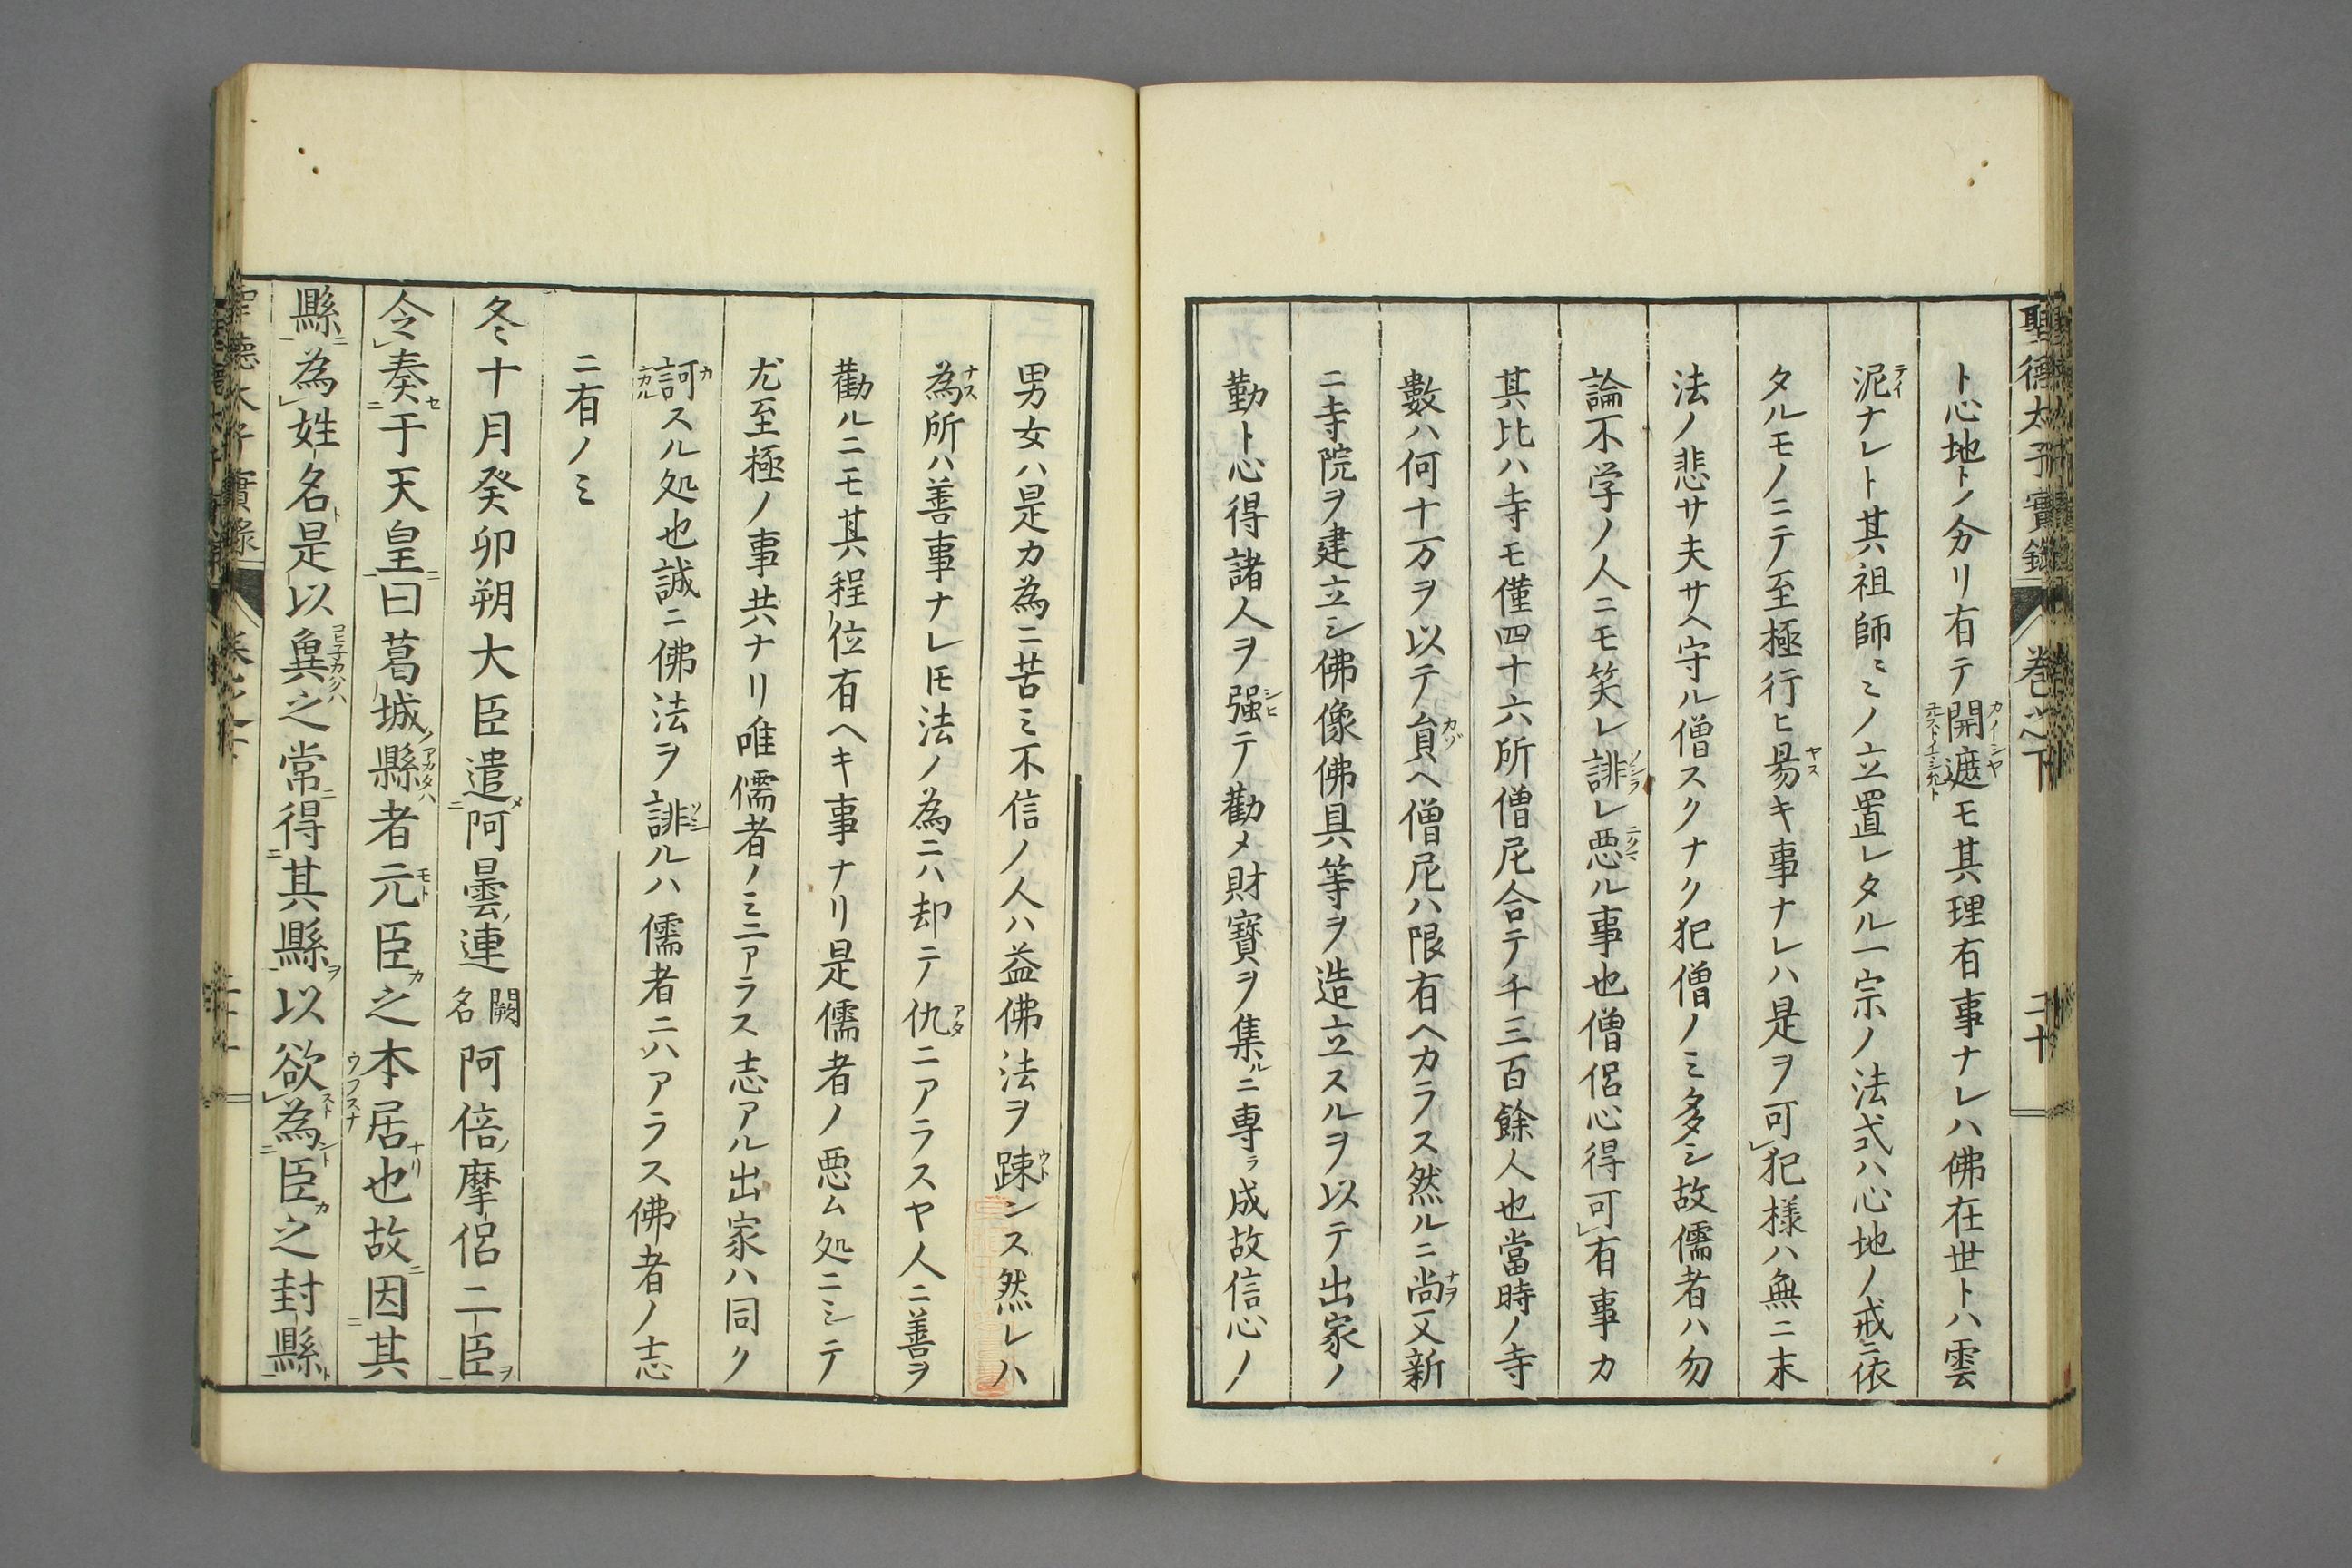 聖德太子實録 巻之下 二十
ト心地トノ分リ有テ開遮モ其理有事ナレハ佛在世トハ雲
泥ナレト其祖師〻ミノ立置レタル一宗ノ法式ハ心地ノ戒ニ依
タルモノニテ至極行ヒ昜キ事ナレハ是ヲ可犯様ハ無ニ末
法ノ悲サ夫サヘ守ル僧スクナク犯僧ノミ多シ故儒者ハ勿
論不学ノ人ニモ笑レ誹レ悪ル事也僧侶心得可有事カ
其比ハ寺モ僅四十六所僧尼合テ千三百餘人也當時ノ寺
數ハ何十万ヲ以テ貟ヘ僧尼ハ限有ヘカラス然ルニ尚又新
ニ寺院ヲ建立シ佛像佛具等ヲ造立スルヲ以テ出家ノ
勤ト心得諸人ヲ强テ勸メ財寳ヲ集ルニ専ラ成故信心ノ
男女ハ是カ為ニ苦ミ不信ノ人ハ益佛法ヲ踈ンス然レハ
為所ハ善事ナレ𪜈法ノ為ニハ却テ仇ニアラスヤ人ニ善ヲ
勸ルニモ其程位有ヘキ事ナリ是儒者ノ悪ム処ニシテ
尤至極ノ事共ナリ唯儒者ノミニアラス志アル出家ハ同ク
訶スル処也誠ニ佛法ヲ誹ルハ儒者ニハアラス佛者ノ志
ニ有ノミ
冬十月癸卯朔大臣遣阿曇連闕名阿倍摩侶二臣
令奏于天皇曰葛城縣者元臣之本居也故因其
縣為姓名是以兾之常得其縣以欲為臣之封縣
聖德太子實録